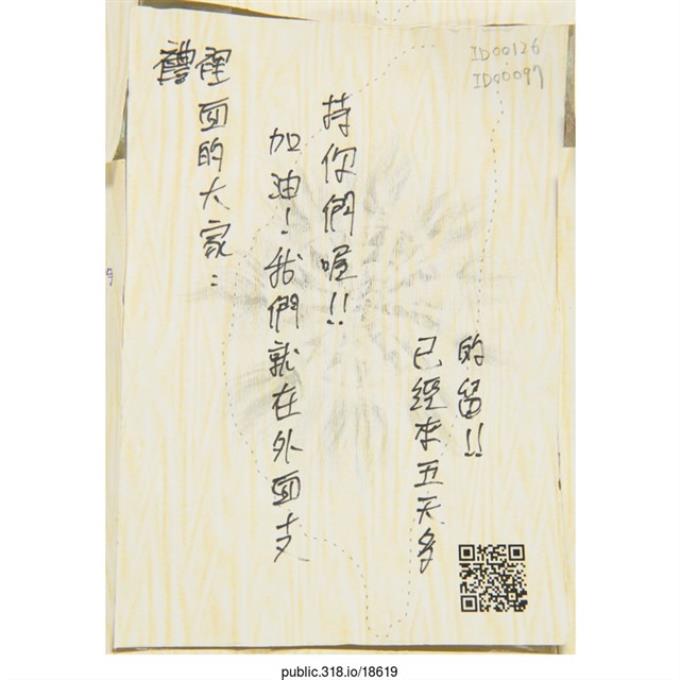 ID00126
ID00097
裡面的大家：
加油！我們就在外面支
持你們喔!!
已經來五天多
的留!!
public.318.io/18619